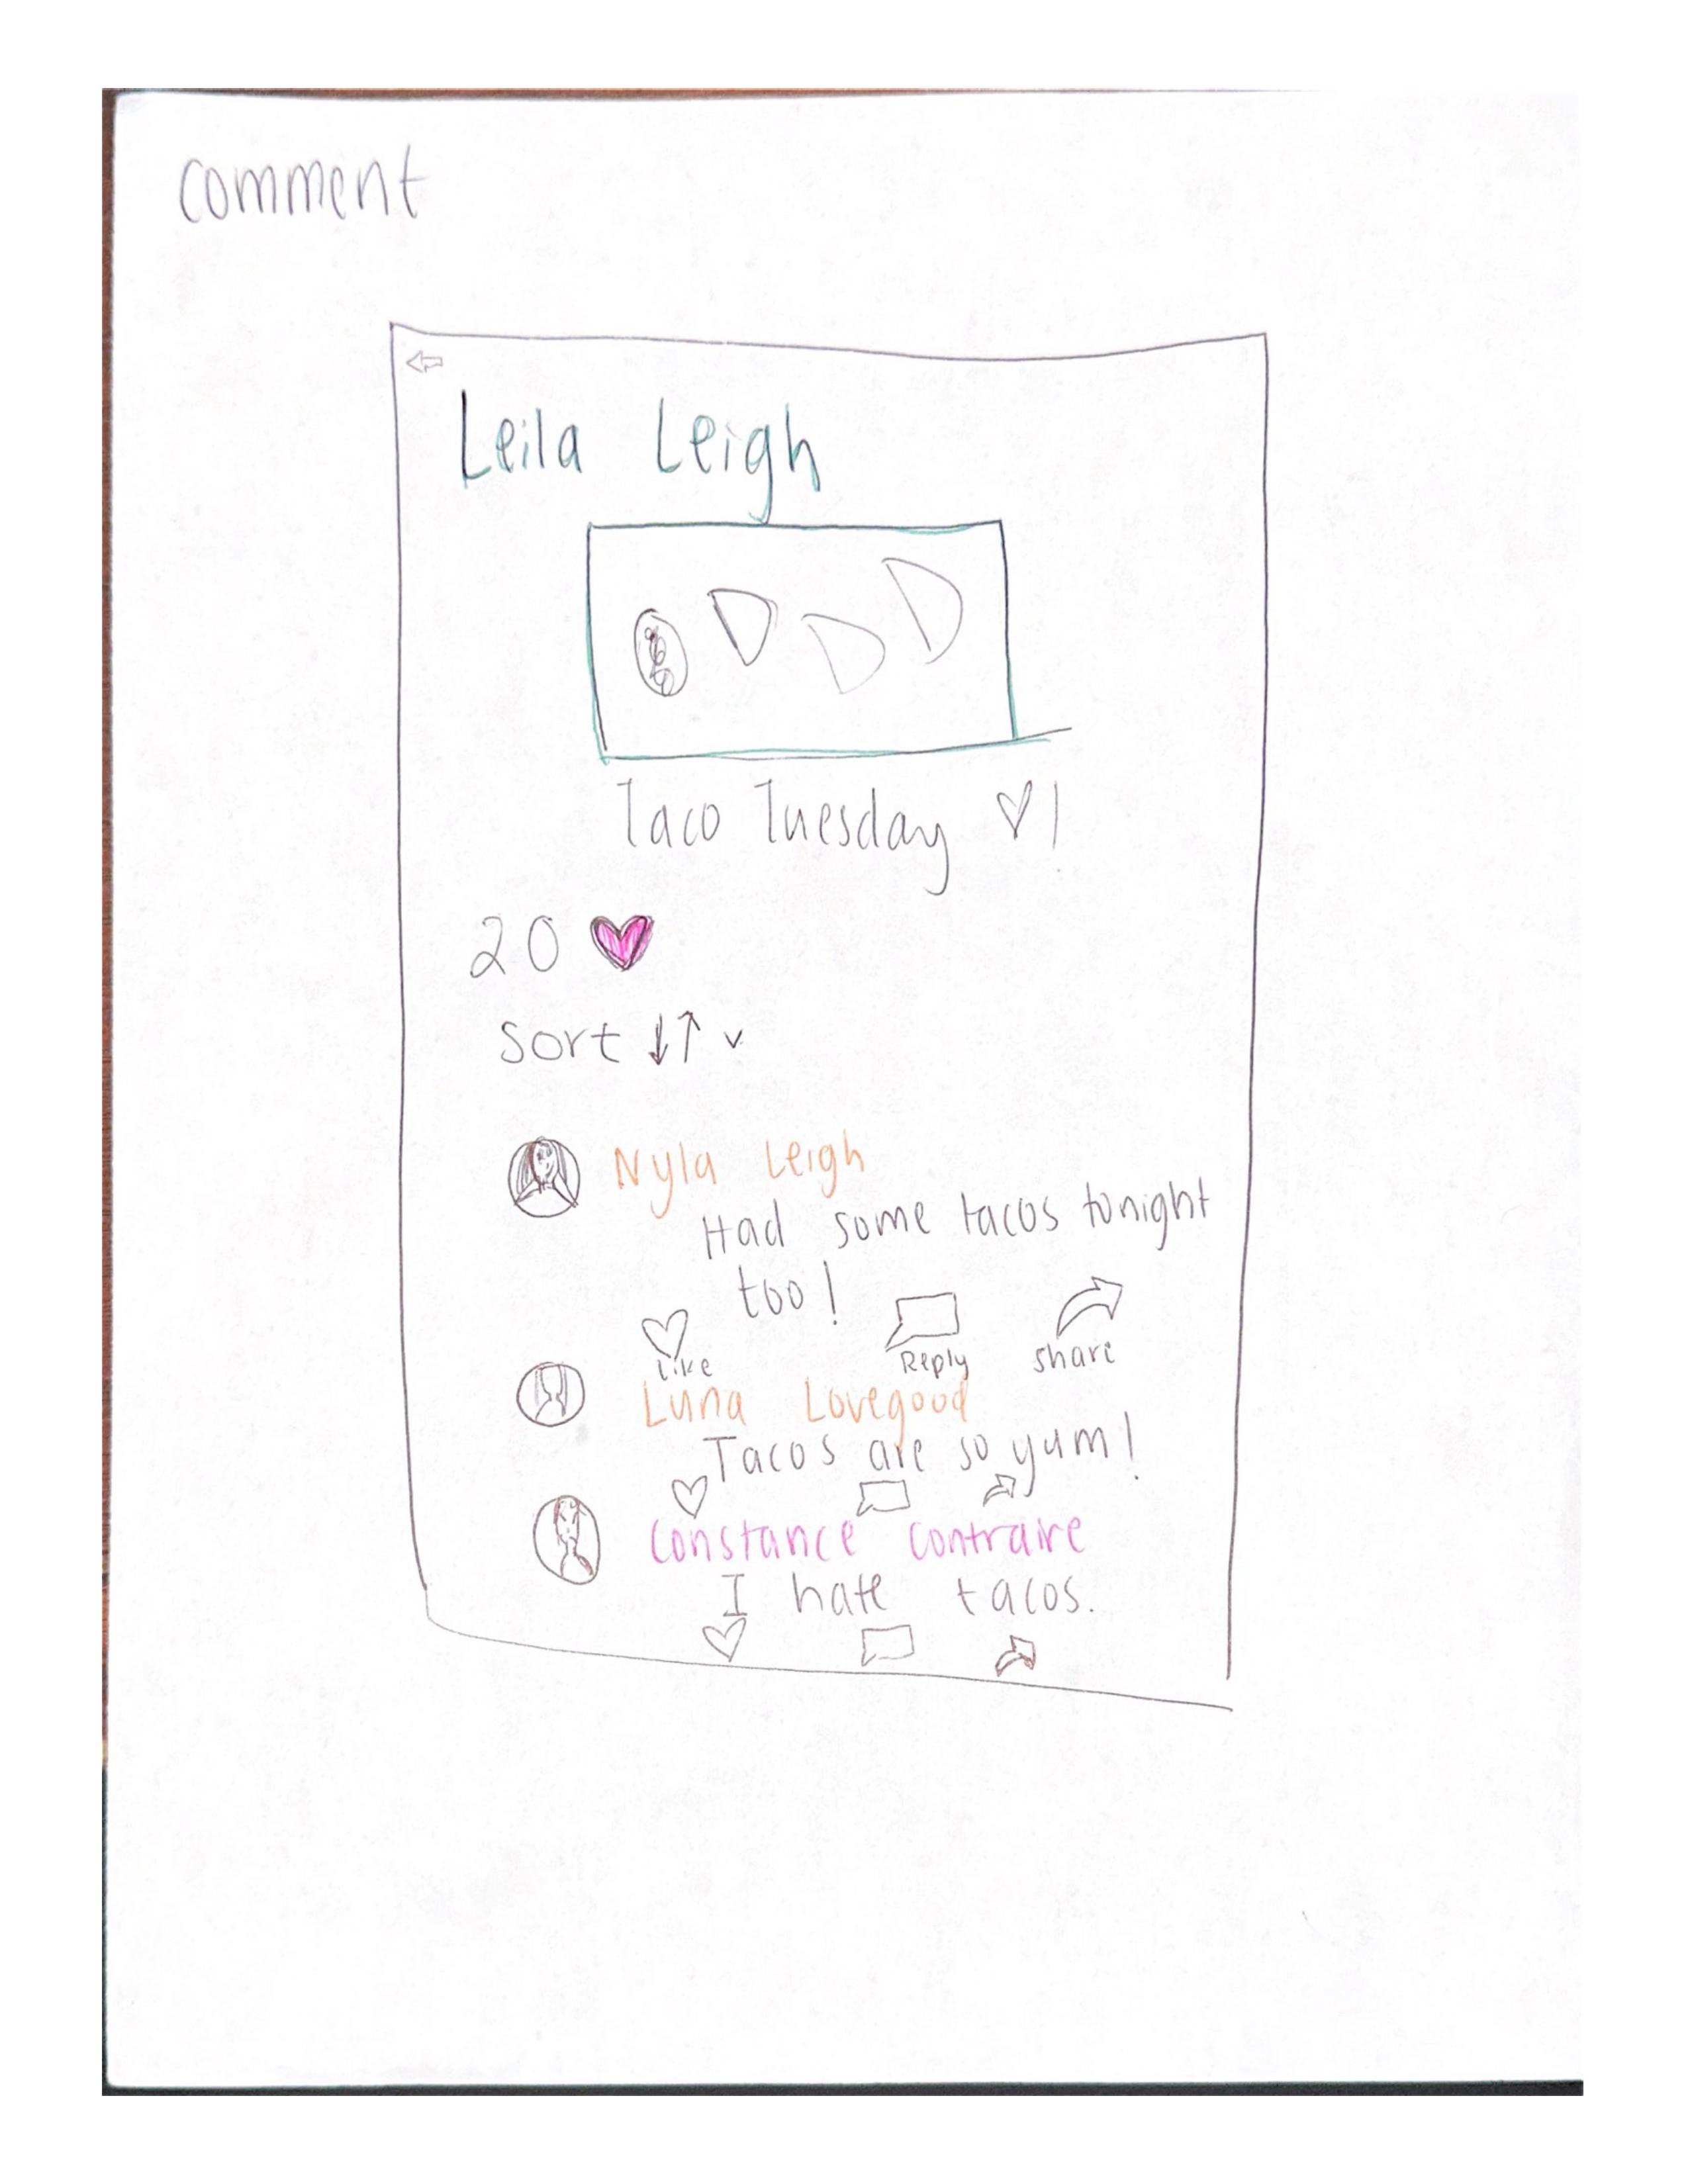 comment
Leila Leigh
Taco Tuesday ♡!
20 ♥
sort ↓↑ ˅
Nyla Leigh
Had some tacos tonight
too!
like Reply share
Luna Lovegood
Tacos are so yum!
Constance Contraire
I hate tacos.